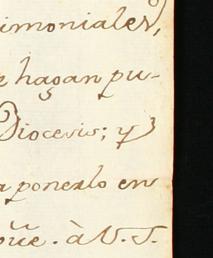 imoniales,
hagan pu-
Diocesis; y
ponerlo en
què. à V. S.